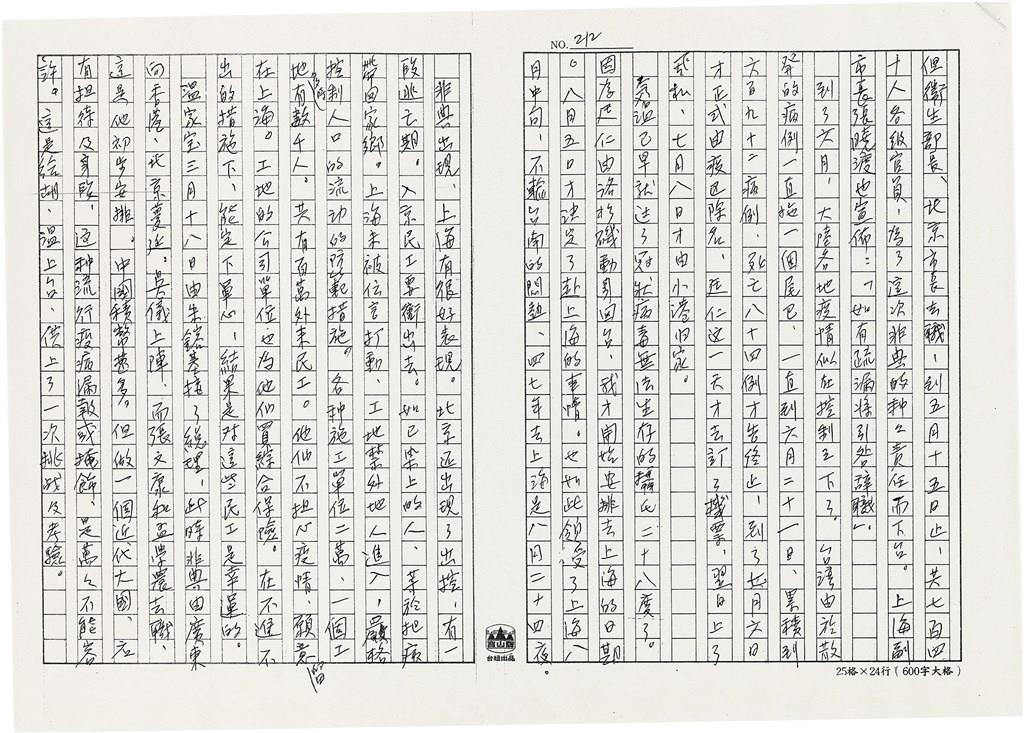 NO. 212
但衛生部長、北京市長去職，到五月十五日止，共七百四
十人各級官員，為了這次非典的种々責任而下台。上海副
市長張曉渡也宣佈：「如有疏漏將引咎辭職」。
到了六月，大陸各地疫情似在控制之下了。台灣由於散
發的病例，一直拖一個尾巴，一直到六月二十一日，累積到
六百九十二病例，死亡八十四例才告終止，到了七月六日
才正式由疫區除名，延仁这一天才去訂了機票，翌日上了
飛机，七月八日才由小港归家。
氣溫已早就过了冠狀病毒無法生存的攝氏二十八度了。
因為延仁由洛杉磯動身回台，我才開始安排去上海的日期
。八月五日才決定了赴上海的事情。也如此領受了上海八
月中旬，不輸台南的悶熱、四七年去上海是八月二十四夜。
25格×24行（600字大格）
台紐出品
非典出現，上海有很好表現。北京还出現了出控，有一
段逃亡期。入京民工要衝出去。如已染上的人，等於把病
帶回家鄉。上海未被伝言打動，工地禁外地人進入，嚴格
控制人口的流动的防範措施。各种施工單位二萬，一個工
地有數千人。共有百萬外来民工。他们不担心疫情，願意留
在上海。工地的公司單位也为他们買綜合保險。在不進不
出的措施下，能定下單心，結果是对這些民工是幸運的。
溫家宝三月十八日由朱鎔基接了總理，此時非典由廣東
向香港、北京蔓延。吳儀上陣，而張文康和孟學農去職，
這是他初步安排。中國積弊甚多。但做一個近代大國，应
有担待及身段，这种流行疫病漏報或掩飾，是萬々不能容
許。這是給胡、温上台，供上了一次挑战及考驗。